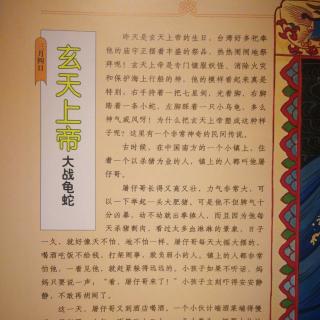 三月四日
玄天上帝
大战龟蛇
昨天是玄天上帝的生日,台湾好多祀奉
他的庙宇正摆着丰盛的祭品,热热闹闹地祭
拜呢!玄天上帝是专门镇服妖怪、消除火灾
和保护海上行船的神。他的模样看起来真是
特别,右手持着一把七星剑,光着脚,右脚
踏着一条小蛇,左脚踩着一只小乌龟,多么
神气威风呵!为什么把玄天上帝塑成这种样
子呢?这里有一个非常神奇的民间传说。
古时候,在中国南方的一个小镇上,住
着一个以杀猪为业的人,镇上的人都叫他屠
仔哥。
屠仔哥长得又高又壮,力气非常大,可
以一下举起一头大肥猪,可是他不但脾气十
分凶暴,动不动就出拳揍人,而且因为他每
天杀猪割肉,看过太多血淋淋的景象,日子
一久,就好像天不怕、地不怕一样。屠仔哥每天大摇大摆的,
喝酒吃饭不给钱,打架闹事,欺负弱小的人。镇上的人都非常
怕他,一看见他,就赶紧躲得远远的。小孩子如果不听话,妈
妈只要说一声:“看,屠仔哥来了!”小孩子立刻吓得安安静
静,不敢再胡闹了。
这一天,屠仔哥又到酒店喝酒。一个小伙计端酒菜端得慢